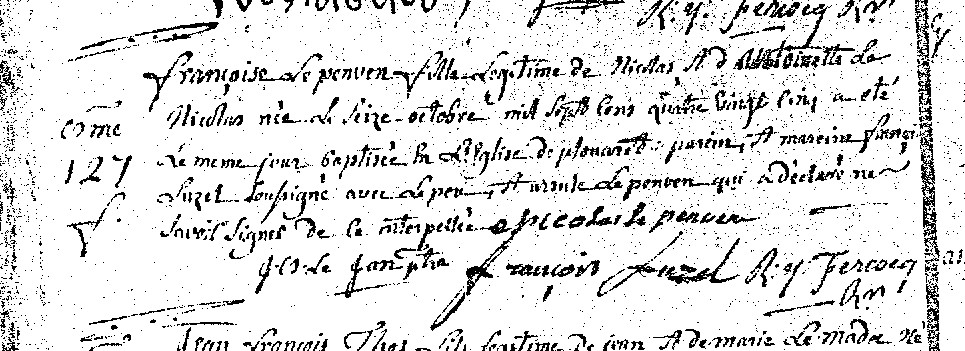 R. Y. Fercocq Rr
françoise Le penven fille Legitime de Nicolas & d'Antoinette Le
Nicolas née Le Seize octobre mil Sept Cens quatre vingt cinq a eté
eme
127
Le meme jour baptisée En L'Eglise de plouaret parein, & mareine françois
Luzel Soussigné avec Le pere, & Le penven qui a déclaré ne
f.
Savoir Signer de ce interpellée Nicolas le penven
Le Jan ptre François Luzel R. Y Fercocq
Rr
Jean François fils legitime de jean & de marie Le né